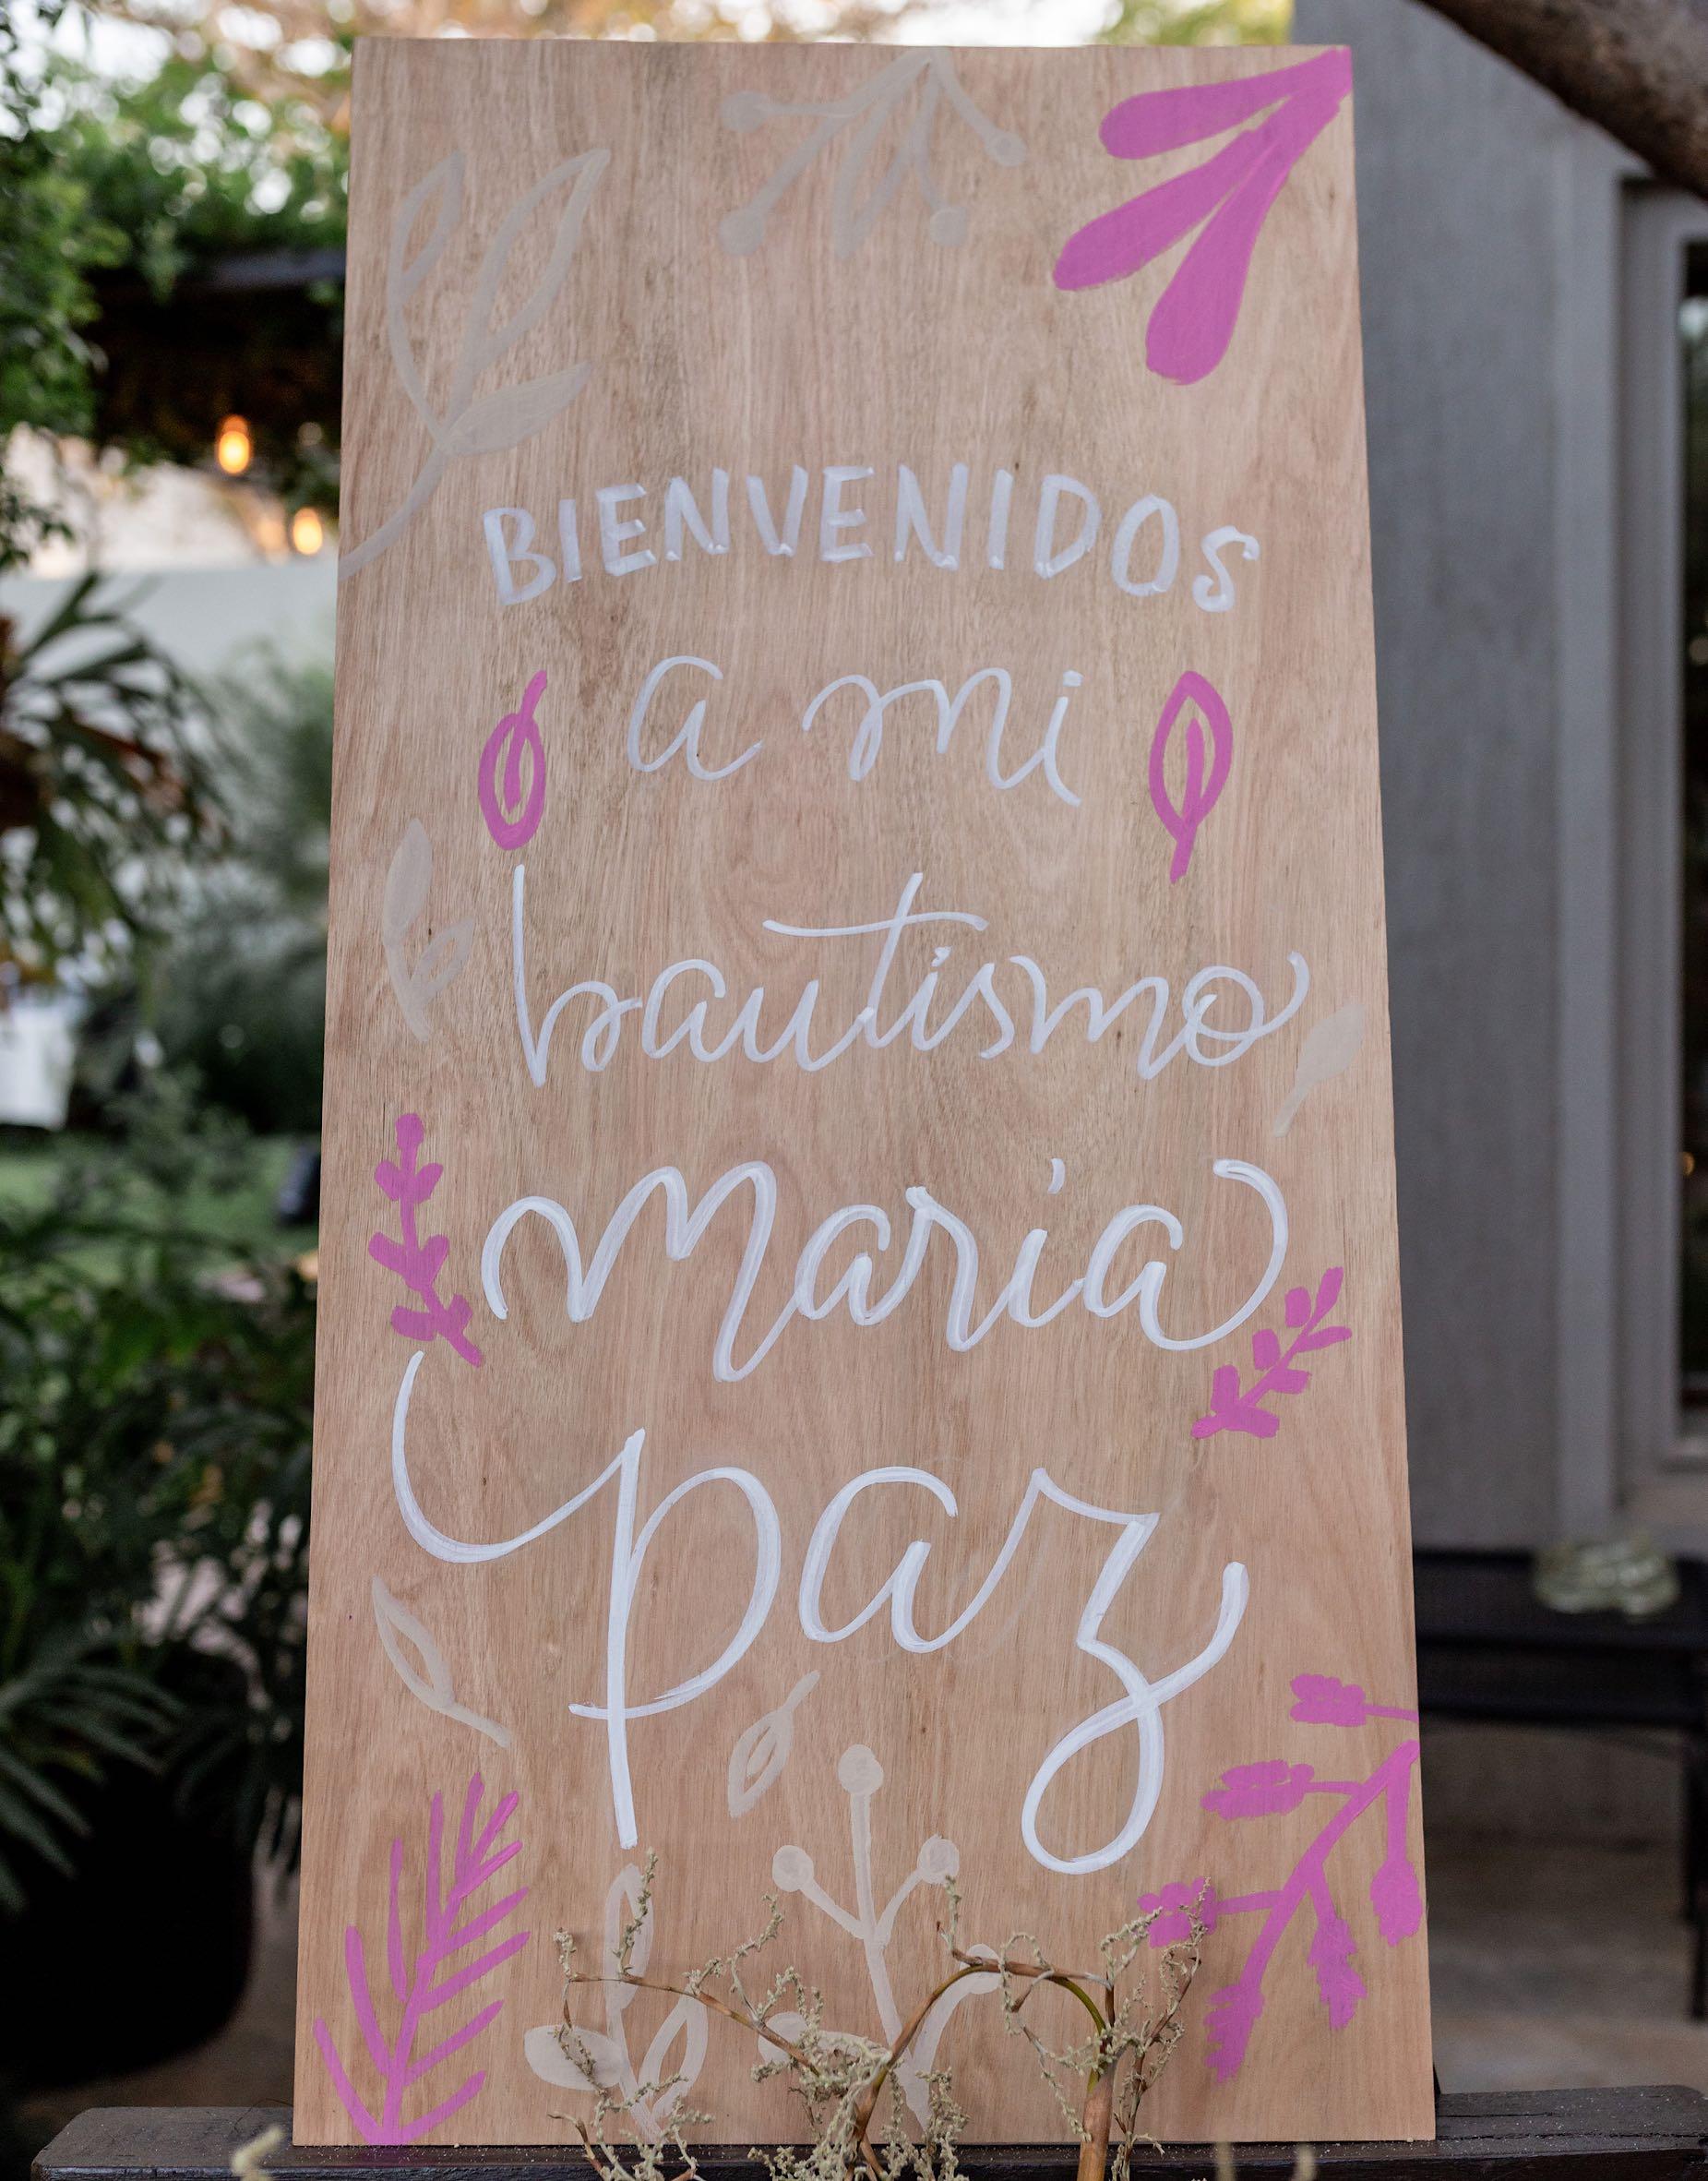 BIENVENIDOS
a mi
bautismo
maria
paz